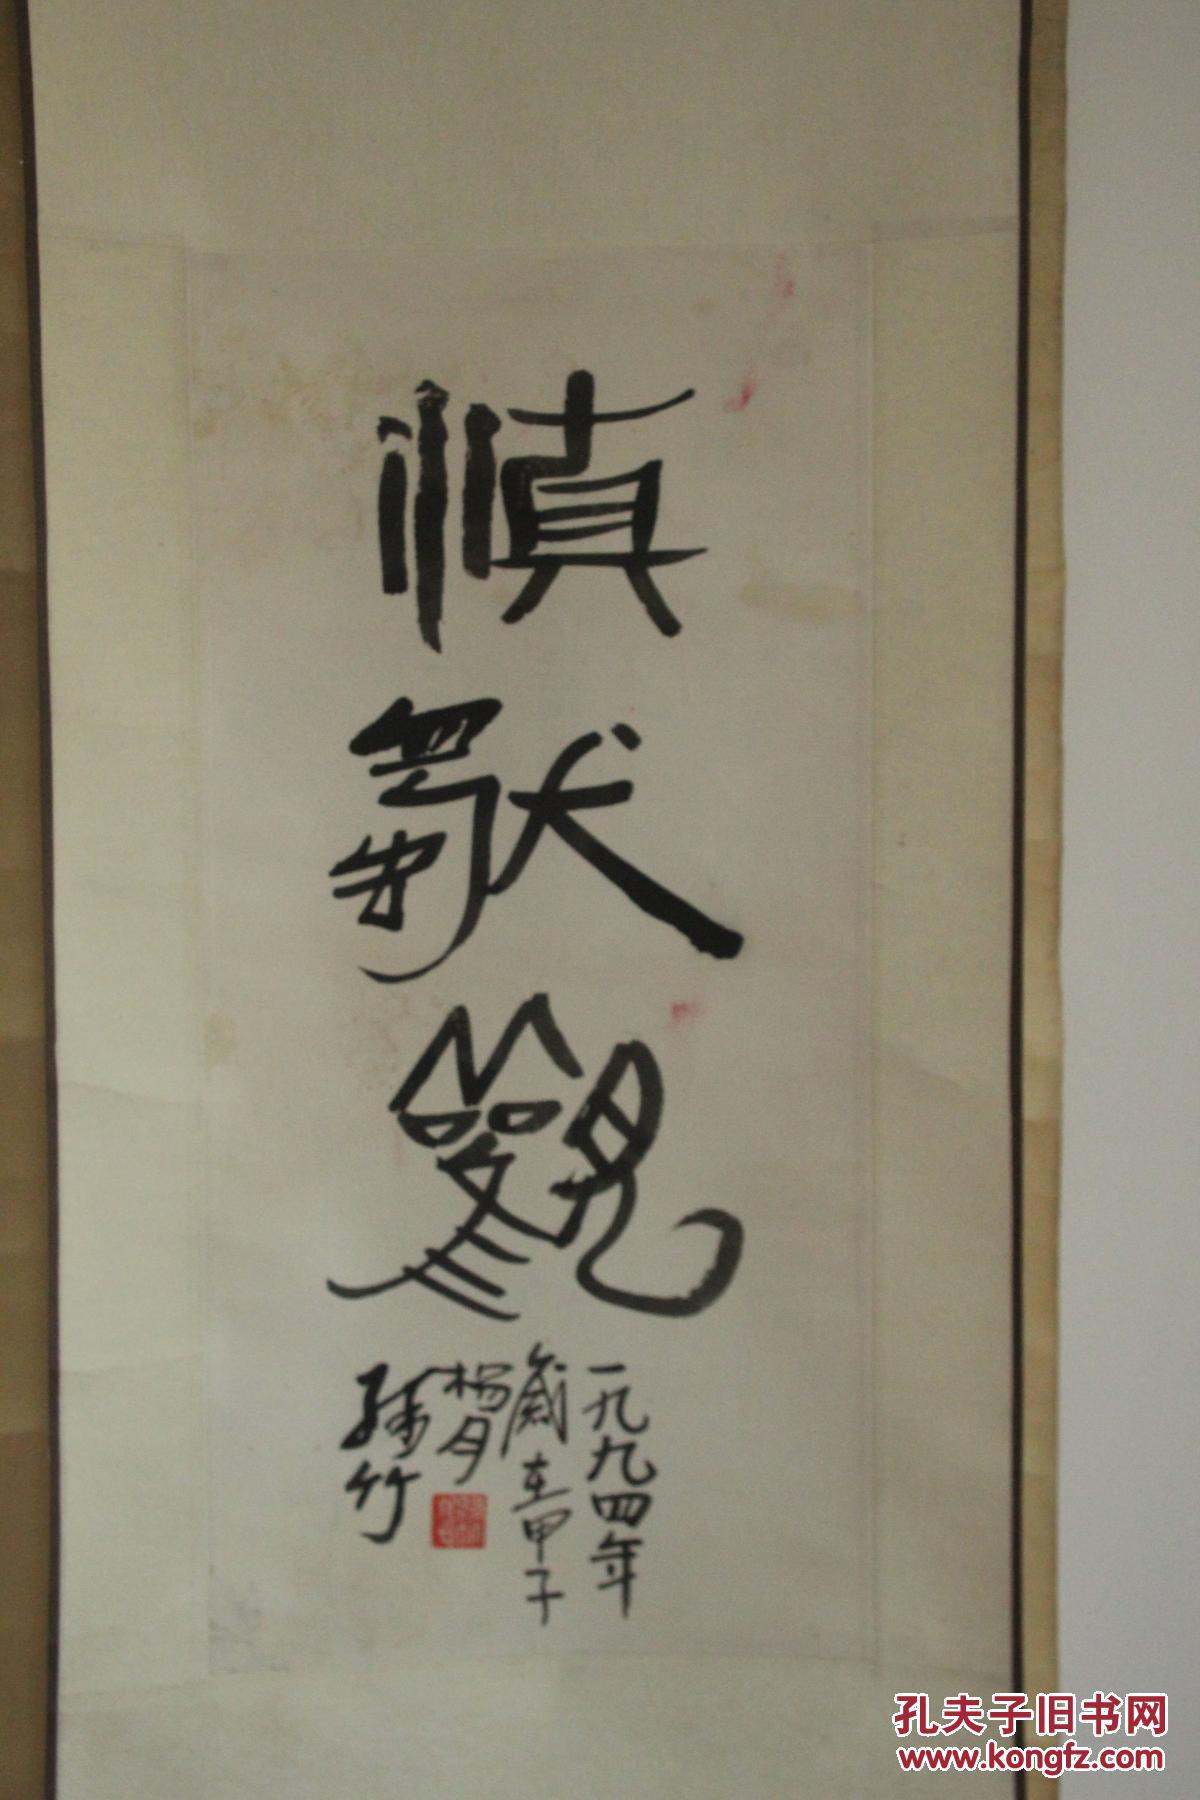 慎獨觀
一九九四年
歲在甲子
楊月
竹
孔夫子旧书网
www.kongfz.com